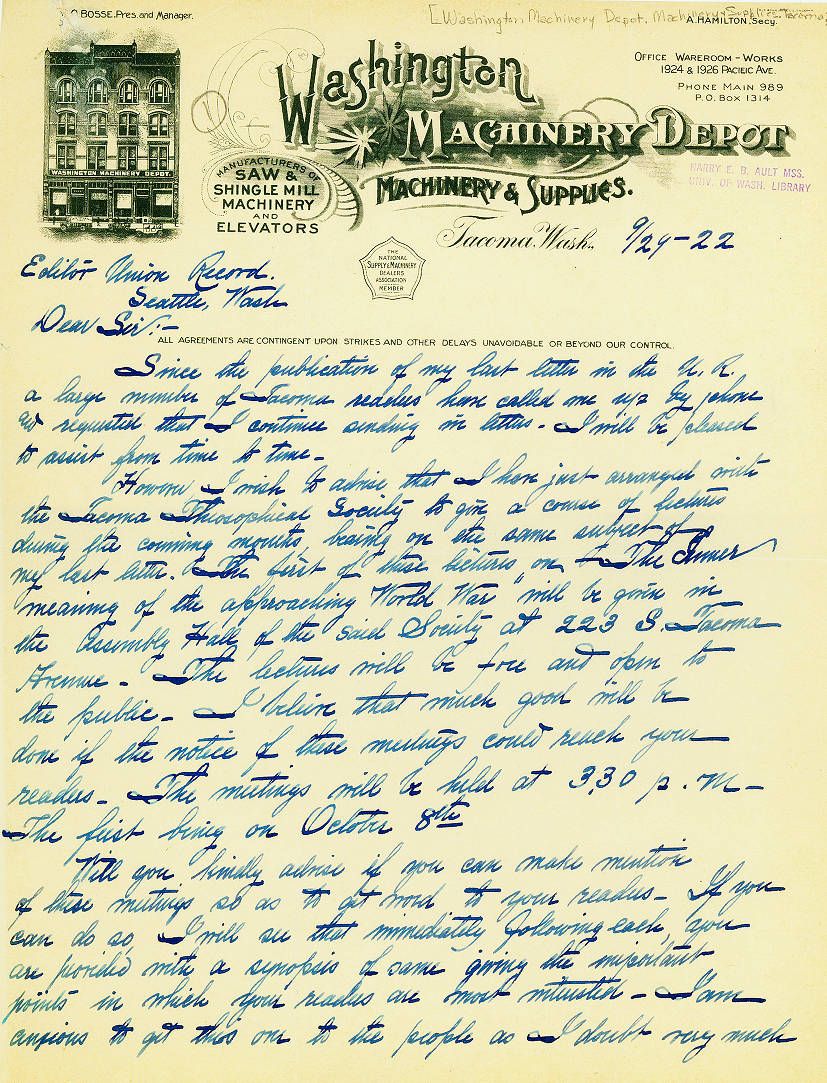 O BOSSE. Pres. and Manager.
[Washington Machinery Depot. Machinery Supplies. Tacoma]
A. HAMILTON. Secy.
OFFICE WAREROOM - WORKS
1924 & 1926 PACIFIC AVE.
PHONE MAIN 989
P.O. BOX 1314
Washington
MACHINERY DEPOT
MACHINERY & SUPPLIES.
WASHINGTON MACHINERY DEPOT.
MANUFACTURERS OF
SAW &
SHINGLE MILL
MACHINERY
AND
ELEVATORS
HARRY E. B. AULT MSS.
UNIV. OF WASH. LIBRARY
Tacoma, Wash., 9/29-22
THE
NATIONAL
SUPPLY & MACHINERY
DEALERS
ASSOCIATION
MEMBER
Editor Union Record.
Seattle, Wash
Dear Sir:-
ALL AGREEMENTS ARE CONTINGENT UPON STRIKES AND OTHER DELAYS UNAVOIDABLE OR BEYOND OUR CONTROL.
Since the publication of my last letter in the U. R.
a large number of Tacoma readers have called me up by phone
and requested that I continue sending in letters - I will be pleased
to assist from time to time -
However I wish to advise that I have just arranged with
the Tacoma Theosophical Society to give a course of lectures
during the comming months, bearing on the same subject of
my last letter. The first of these lectures on "The Inner
meaning of the approaching World War" will be given in
the Assembly Hall of the said Society at 223 S. Tacoma
Avenue - The lectures will be free and open to
the public - I believe that much good will be
done if the notice of these meetings could reach your
readers - The meetings will be held at 3,30 p. m -
The first being on October 8th
Will you kindly advise if you can make mention
of these meetings so as to get word to your readers - If you
can do so, I will see that immediately following each, you
are provided with a synopsis of same giving the important
points in which your readers are most interested - I am
anxious to get this over to the people as I doubt very much